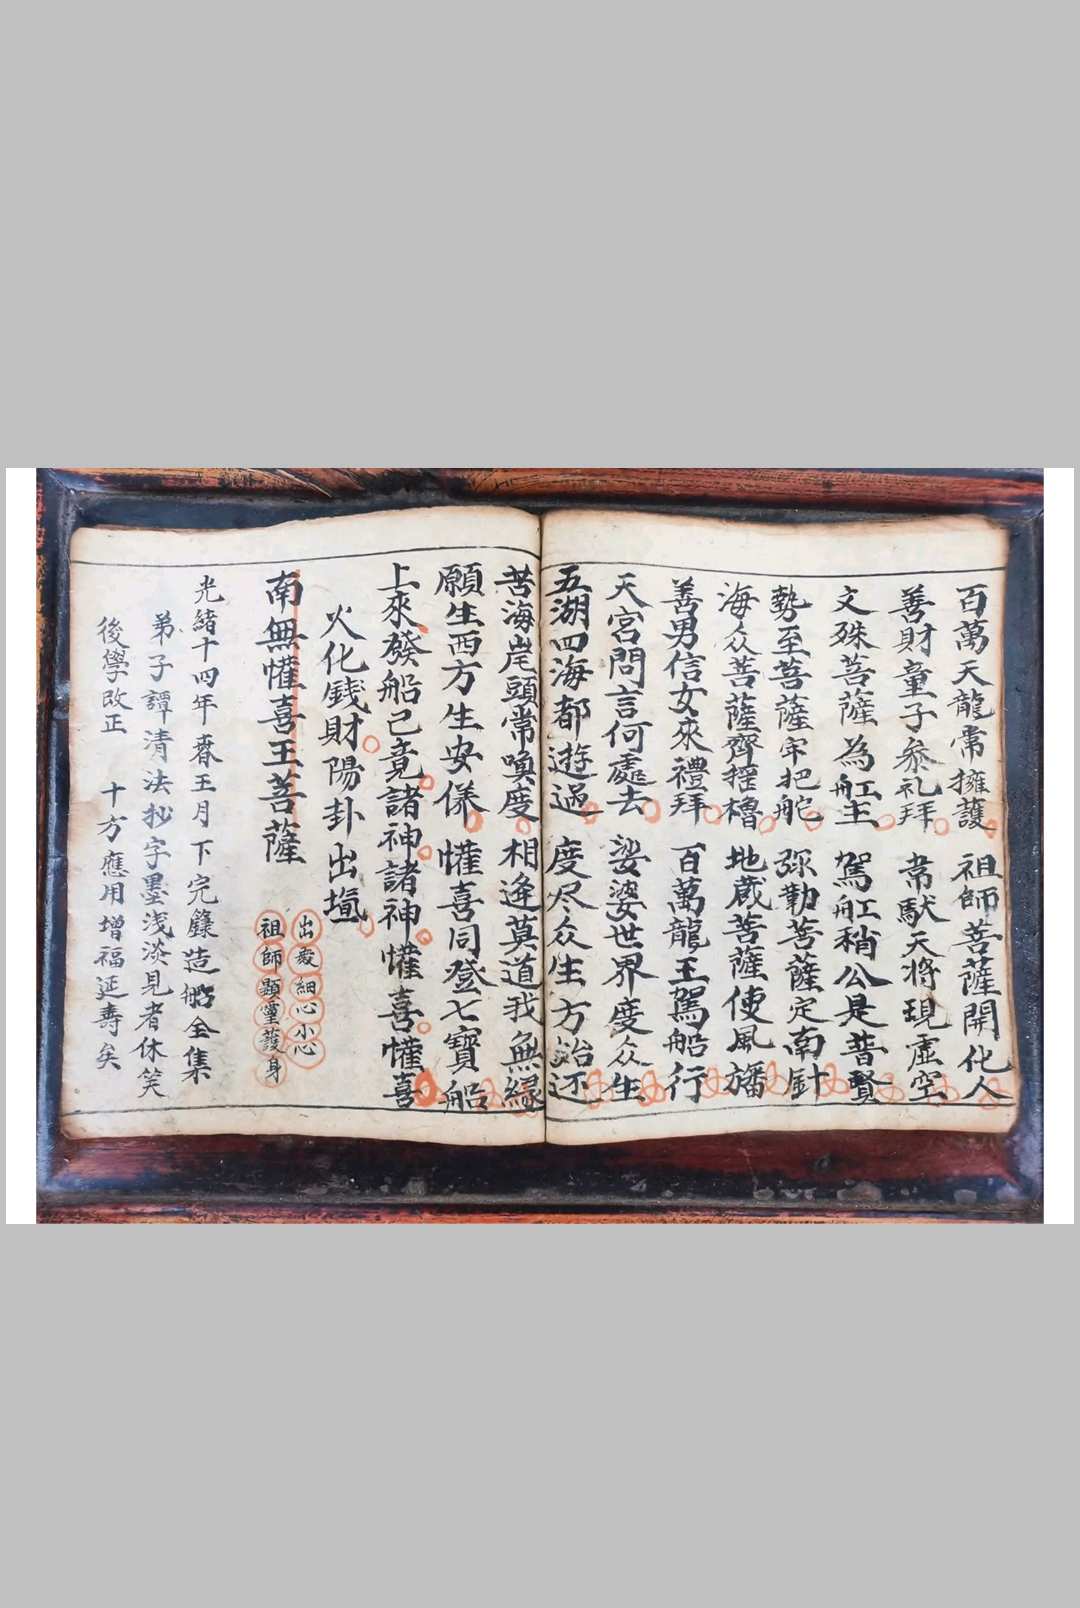 百萬天龍常擁護 祖師菩薩開化人
善財童子參礼拜 韋馱天將現虛空
文殊菩薩為舡主 駕舡稍公是普賢
勢至菩薩牢把舵 弥勒菩薩定南針
海众菩薩齊搖櫓 地蔵菩薩使風旛
善男信女來禮拜 百萬龍王駕船行
天宮問言何處去 娑婆世界度众生
五湖四海都遊過 度尽众生方始还
苦海岸頭常喚度 相逢莫道我無緣
願生西方生安養 懽喜同登七寳船
上來發船已竟諸神諸神懽喜懽喜
火化錢財陽卦出
南無懽喜王菩薩
出 細心小心
祖師顕灵護身
光緒十四年春王月下完錄造船全集
弟子譚清法抄字墨浅淡見者休笑
後學改正 十方應用增福延壽矣